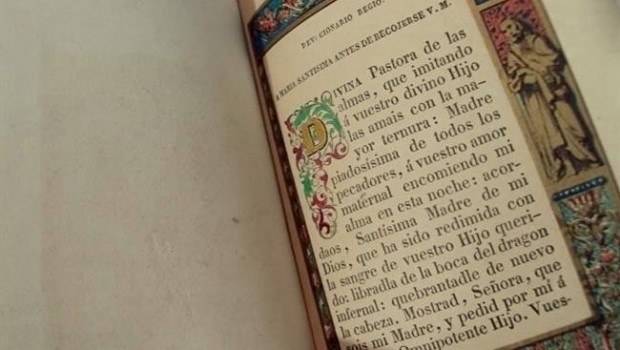 DEVOCIONARIO REGIO.
A MARIA SANTISIMA ANTES DE RECOJERSE V. M.
DIVINA Pastora de las
almas, que imitando
á vuestro divino Hijo
las amais con la ma-
yor ternura: Madre
piadosísima de todos los
pecadores, á vuestro amor
maternal encomiendo mi
alma en esta noche: acor-
daos, Santisima Madre de mi
Dios, que ha sido redimida con
la sangre de vuestro Hijo queri-
do: libradla de la boca del dragon
infernal: quebrantadle de nuevo
la cabeza. Mostrad, Señora, que
sois mi Madre, y pedid por mí á
Omnipotente Hijo. Vues-